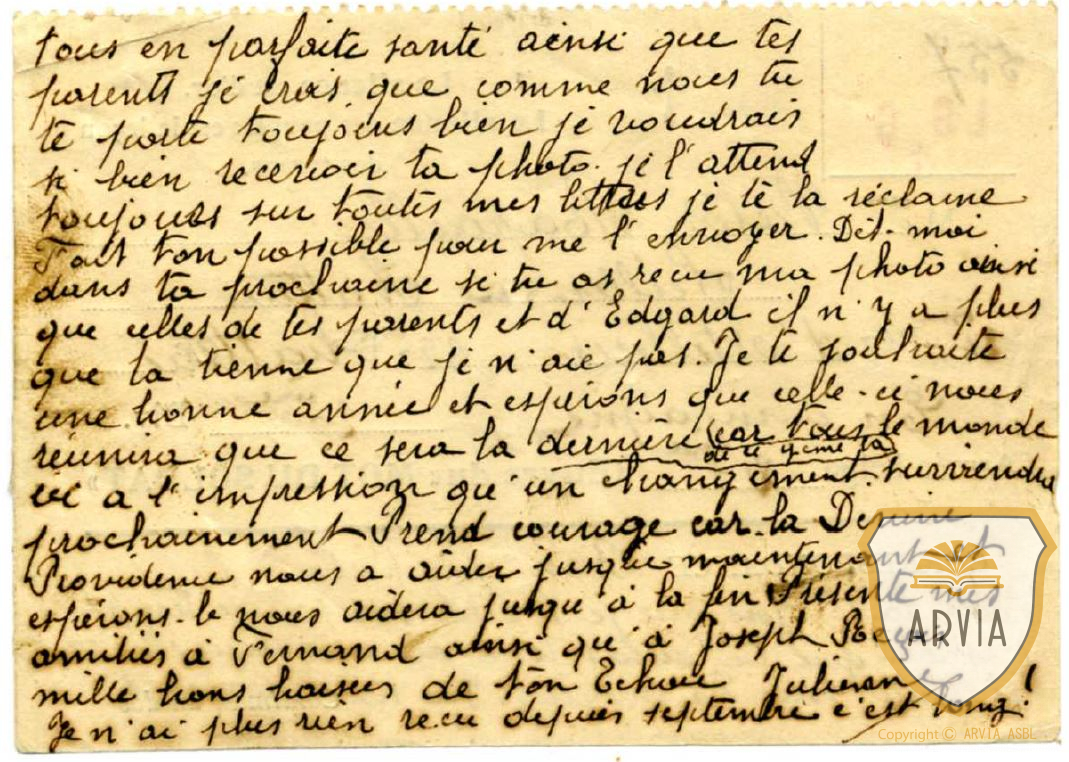 tous en parfaite santé ainsi que tes
parents je crois que comme nous tu
te porte toujours bien je voudrais
si bien recevoir ta photo. je l'attend
toujours sur toutes mes lettres je te la réclame
Fait ton possible pour me l'envoyer. Dit-moi
dans ta prochaine si tu as recu ma photo ainsi
que celles de tes parents et d'Edgard il n'y a plus
que la tienne que je n'aie pas. Je te souhaite
une bonne année et espérons que celle-ci nous
réunira que ce sera la dernière car tous le monde
de ce
ici a l'impression qu'un changement surviendra
prochainement Prend courage car la Divine
Providence nous a aider jusque maintenant et
espérons-le nous aidera jusqu'à la fin Présente mes
amitiés à Fernand ainsi qu'à Joseph
mille bons baisers de ton Julien
Je n'ai plus rien recu depuis septembre c'est long!
ARVIA
Copyright © ARVIA ASBL